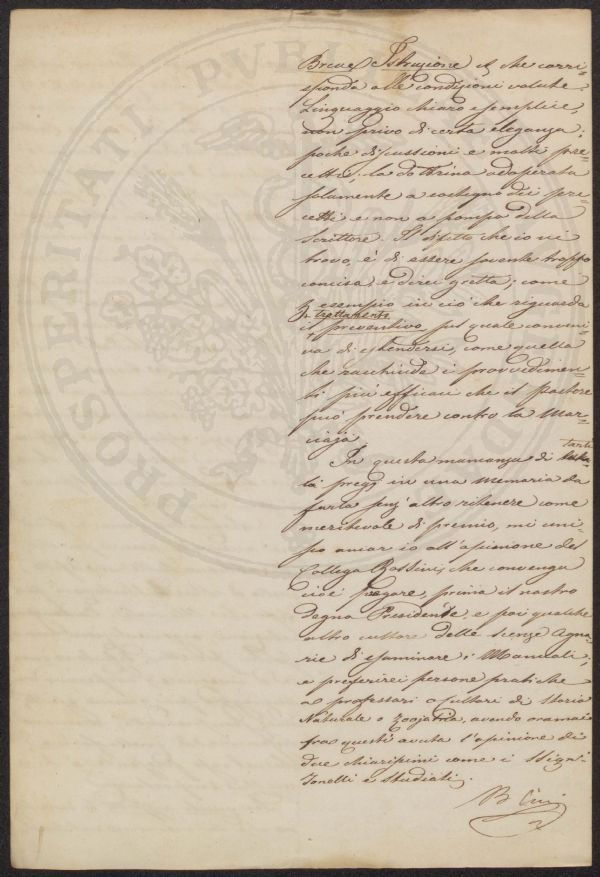 Breve Istruzione &, che corri=
sponda alle condizioni volute
Linguaggio chiaro e semplice,
non privo di certa eleganza;
poche discussioni e molti pre=
cetti; la dottrina adoperata
solamente a sostegno dei pre=
cetti e non a pompa dello
Scrittore. Il difetto che io vi
trovo, è di essere sovente troppo
concisa, e direi gretta; come
p esempio in ciò che riguarda
il trattamento preventivo sul quale conveni=
va di estendersi, come quello
che racchiude i provvedimen=
ti più efficaci che il pastore
può prendere contro la Mar=
ciaja
In questa mancanza di tanti
pregj in una Memoria da
farla senz'altro ritenere come
meritevole di premio, mi uni=
sco ancor io all'opinione del
Collega che convenga
cioè pregare, prima il nostro
degno Presidente, e poi qualche
altro cultore delle Scienze Agra=
rie di esaminare i Manuali;
e preferirei persone pratiche
a professori o Cultori di Storia
Naturale o Zoojatria, avendo oramai
fra questi avuta l'opinione di
due chiarissimi come i Sigri
Tonelli e Studiati.
PROSPERITATI PVBLICAE